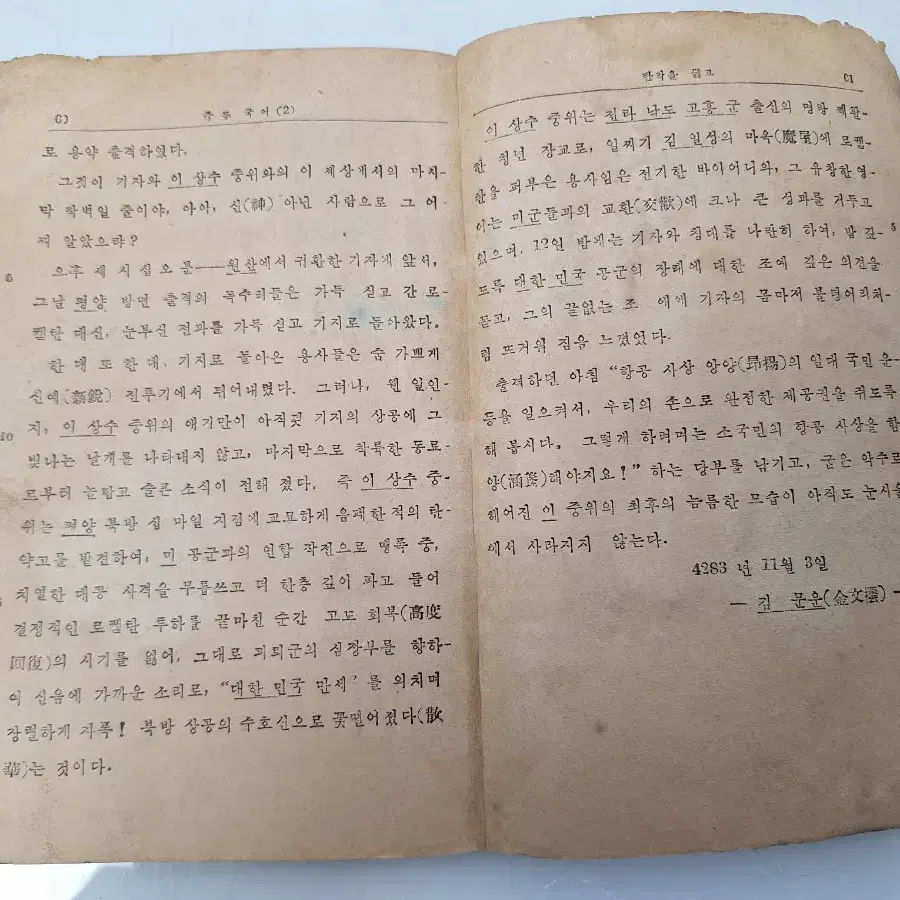 중등 국어 (2)
로 용약 출격하였다.
그것이 기자와 이 상수 중위와의 이 세상에서의 마지-
막 작별일 줄이야, 아아, 신(神) 아닌 사람으로 그 어
찌 알았으랴?
5
오후 세 시 십오 분——원산에서 귀환한 기자에 앞서,
그날 평양 방면 출격의 독수리들은 가득 싣고 간 로-
켙탄 대신, 눈부신 전과를 가득 싣고 기지로 돌아왔다.
한 대 또 한 대, 기지로 돌아온 용사들은 숨 가쁘게
신예(新銳) 전투기에서 뛰어내렸다. 그러나, 웬 일인-
10
지, 이 상수 중위의 애기만이 아직껏 기지의 상공에 그
빛나는 날개를 나타내지 않고, 마지막으로 착륙한 동료-
로부터 놀랍고 슬픈 소식이 전해 졌다. 즉 이 상수 중-
위는 평양 북방 십 마일 지점에 교묘하게 음폐한 적의 탄-
약고를 발견하여, 미 공군과의 연합 작전으로 맹폭 중,
치열한 대공 사격을 무릅쓰고 더 한층 깊이 파고 들어
결정적인 로켙탄 투하를 끝마친 순간 고도 회복(高度
回復)의 시기를 잃어, 그대로 괴뢰군의 심장부를 향하-
여 신음에 가까운 소리로, “대한 민국 만세’를 외치며
장렬하게 자폭! 북방 상공의 수호신으로 꽃떨어졌다(散
華)는 것이다.
만학을 고
이 상수 중위는 전라 남도 고흥 군 출신의 명랑 쾌활-
한 청년 장교로, 일찌기 김 일성의 마옥(魔屋)에 로켙-
탄을 퍼부은 용사임은 전기한 바이어니와, 그 유창한 영-
어는 미군들과의 교환(交歡)에 크나 큰 성과를 거두고
5
있으며, 12일 밤에는 기자와 침대를 나란히 하여, 밤 깊-
도록 대한 민국 공군의 장래에 대한 조예 깊은 의견을
듣고, 그의 끝없는 조 예에 기자의 몸마저 불덩어리처-
럼 뜨거워 짐을 느꼈었다.
출격하던 아침 “항공 사상 앙양(昻揚)의 일대 국민 운-
동을 일으켜서, 우리의 손으로 완전한 제공권을 쥐도록
해 봅시다. 그렇게 하려며는 소국민의 항공 사상을 함-
양(涵養)해야지요!” 하는 당부를 남기고, 굳은 악수로
헤어진 이 중위의 최후의 늠름한 모습이 아직도 눈시울
에서 사라지지 않는다.
4283 년 11월 3일
— 김 문운(金文) —